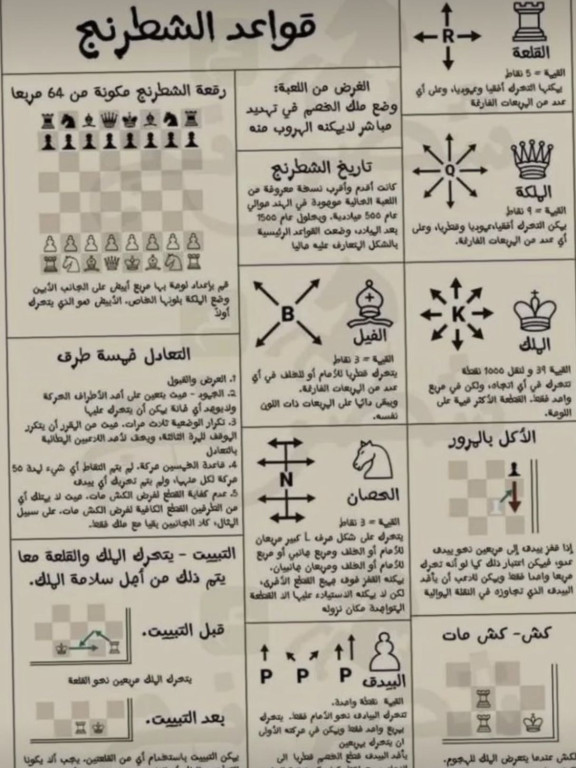 قواعد الشطرنج
R
القلعة
القيمة = 5 نقاط
يمكنها التحرك أفقيا وعموديا، وعلى أي
عدد من المربعات الفارغة
رقعة الشطرنج مكونة من 64 مربعا
قم بإعداد لوحة بها مربع أبيض على الجانب الأيمن
وضع الملكة بلونها الخاص. الأبيض هو الذي يتحرك
أولاً
الغرض من اللعبة:
وضع ملك الخصم في تهديد
مباشر لايمكنه الهروب منه
تاريخ الشطرنج
كانت أقدم وأقرب نسخة معروفة من
اللعبة الحالية موجودة في الهند حوالي
عام 500 ميلادية. وبحلول عام 1500
بعد الميلاد، وضعت القواعد الرئيسية
بالشكل المتعارف عليه حاليا
Q
الملكة
القيمة = 9 نقاط
يمكن التحرك أفقيا،عموديا وقطريا، وعلى
أي عدد من المربعات الفارغة.
B
الفيل
القيمة = 3 نقاط
يتحرك قطريا للأمام أو للخلف في أي
عدد من المربعات الفارغة.
ويبقى دائما على المربعات ذات اللون
نفسه.
K
الملك
القيمة 39 و لنقل 1000 نقطة
تتحرك في أي اتجاه، ولكن في مربع
واحد فقط. القطعة الأكثر قيمة على
اللوحة.
التعادل خمسة طرق
1. العرض والقبول
2. الجمود - حيث يتعين على أحد الأطراف الحركة
ولايوجد أي خانة يمكن أن يتحرك عليها
3. تكرار الوضعية ثلاث مرات. حيث من المقرر أن يتكرر
الموقف للمرة الثالثة، ويحق لأحد اللاعبين المطالبة
بالتعادل
4. قاعدة الخمسين حركة. لم يتم التقاط أي شيء لمدة 50
حركة لكل منهما، ولم يتم تحريك أي بيدق
5. عدم كفاية القطع لفرض الكش مات. حيث لا يمتلك أي
من الطرفين القطع الكافية لفرض الكش مات. على سبيل
المثال، كلا الجانبين بقيا مع ملك فقط.
N
الحصان
القيمة = 3 نقاط
يتحرك على شكل حرف L كبير مربعان
للأمام أو الخلف ومربع جانبي أو مربع
للأمام أو الخلف ومربعان جانبيان.
يمكنه القفز فوق جميع القطع الأخرى،
لكن لا يمكنه الاستيلاء عليها الا القطعة
المتواجدة مكان نزوله
الأكل بالمرور
إذا قفز بيدق إلى مربعين نحو بيدق
عدو، فيمكن اعتبار ذلك كما لو أنه تحرك
مربعا واحدا فقط ويمكن للاعب أن يأخذ
البيدق الذي تجاوزه في النقلة الموالية
التبييت - يتحرك الملك والقلعة معا
يتم ذلك من أجل سلامة الملك.
قبل التبييت.
يتحرك الملك مربعين نحو القلعة
بعد التبييت.
يمكن التبييت باستخدام أي من القلعتين. يجب ألا يكونا
P P P
البيدق
القيمة نقطة واحدة.
تتحرك البيادق نحو الأمام فقط. يتحرك
بمربع واحد فقط ويمكن في حركته الأولى
ان يتحرك بمربعين
يأخذ البيدق قطع الخصم قطريا الى
كش- كش مات
الكش عندما يتعرض الملك للهجوم.